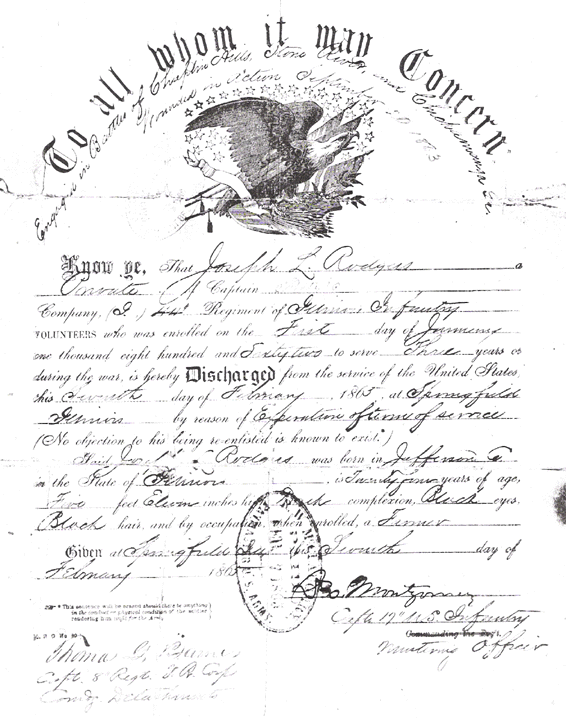 To all whom it may Concern
Engaged in Battles of Chaplin Hills, Stone River, and Chickamauga
Wounded in Action September 1863
Know ye, That Joseph L. Rodgers a
Private Captain
Company, Regiment of Illinois Infantry
VOLUNTEERS who was enrolled on the First day of January
one thousand eight hundred and Sixty two to serve Three years or
during the war, is hereby Discharged from the service of the United States
this Seventh day of February, 1865, at Springfield
Illinois by reason of Expiration of term of service
(No objection to his being re-enlisted is known to exist.)
Said Rodgers was born in Jefferson Co
in the State of Illinois is Twenty four years of age,
Five feet Eleven inches high complexion, Black eyes,
Black hair, and by occupation, when enrolled, a Farmer
Given at Springfield this Seventh day of
February 1865
Montgomery
Capt. U.S. Infantry
Commanding the Reg't.
Mustering Officer
Thomas
Capt. 8" Regt.